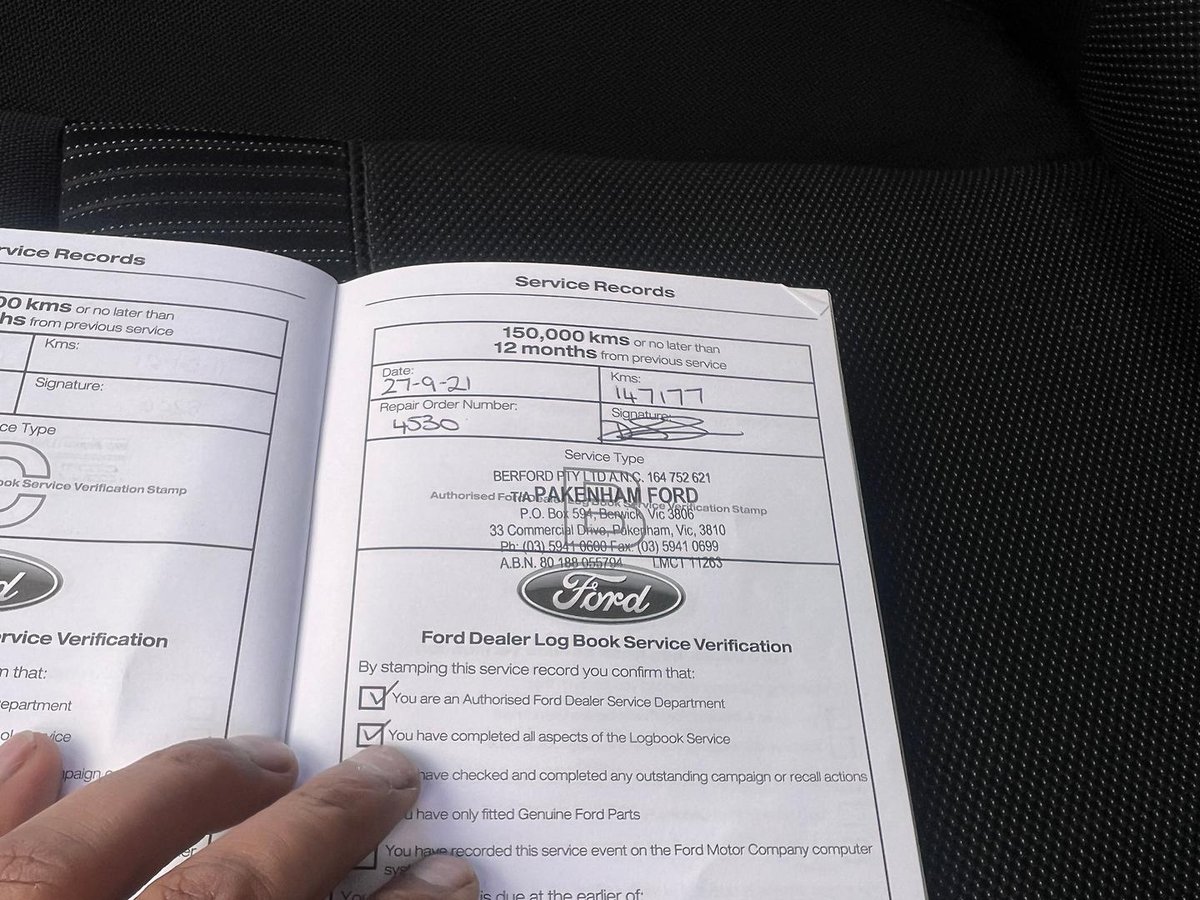 rvice Records
00 kms or no later than
hs from previous service
Kms:
Signature:
ce Type
C
ook Service Verification Stamp
d
rvice Verification
m that:
epartment
Service Records
150,000 kms or no later than
12 months from previous service
Date:
27-9-21
Kms:
147177
Repair Order Number:
4530
Signature:
Service Type
B
BERFORD PTY LTD A.N.C. 164 752 621
T/A PAKENHAM FORD
Authorised Ford Dealer Log Book Service Verification Stamp
P.O. Box 594, Berwick, Vic 3806
33 Commercial Drive, Pakenham, Vic, 3810
Ph: (03) 5941 0600 Fax: (03) 5941 0699
A.B.N. 80 188 055794 LMCT 11263
Ford
Ford Dealer Log Book Service Verification
By stamping this service record you confirm that:
You are an Authorised Ford Dealer Service Department
You have completed all aspects of the Logbook Service
have checked and completed any outstanding campaign or recall actions
u have only fitted Genuine Ford Parts
You have recorded this service event on the Ford Motor Company computer
is due at the earlier of: